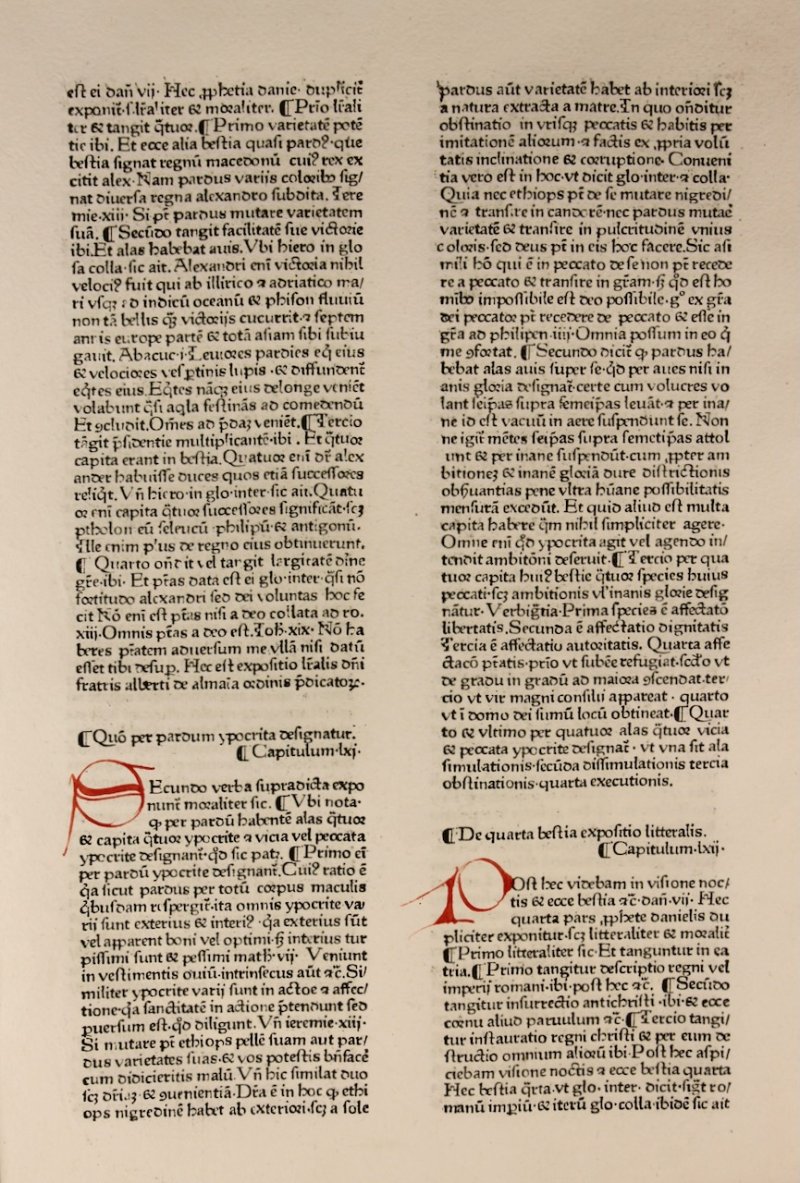 est ei dan̄ vij· Hec ꝓphetia danie· duplicit᷑
exponit᷑·s·lr̄aliter ⁊ moraliter. ¶ Prīo lr̄ali
ter ⁊ tangit q̄tuor ¶ Primo varietatē potē
tie ibi. Et ecce alia bestia quasi pardꝰ· que
bestia signat regnū macedonū cuiꝰ rex ex
citit alex· Nam pardus variis coloribꝰ sig/
nat diuersa regna alexandro subdita. Iere
mie·xiii· Si pt̄ pardus mutare varietatem
suā. ¶ Secūdo tangit facilitatē sue victorie
ibi. Et alas habebat auis. Vbi hiero in glo
sa colla·sic ait. Alexandri enī victoria nihil
velociꝰ fuit qui ab illirico ⁊ adriatico ma/
ri vsqꝫ ad indicū oceanū ⁊ phison fluuiū
non tā bellis qꝫ victorijs cucurrit·⁊ septem
annis europe partē ⁊ totā asiam sibi subiu
gauit. Abacuc·i·Leuiores pardis eq̄ eius
⁊ velociores vesꝑtinis lupis · ⁊ diffundent᷑
eq̄tes eius. Eq̄tes nāqꝫ eius de longe veniēt
volabunt q̄si aq̄la festinās ad comedendū
Et ꝯcludit. Om̄es ad p̄dāꝫ veniēt. ¶ Tercio
tāgit p̄sidentie multiplicantē·ibi . Et q̄tuor
capita erant in bestia. Quatuor enī dr̄ alex
ander habuisse duces quos etiā successores
reliq̄t. Vn̄ hiero·in glo·inter·sic ait. Quatu
or enī capita q̄tuor successores significāt·scꝫ
ptholon eū seleucū philipū·⁊ antigonū.
Ille enim p'us de regno eius obtinuerunt.
¶ Quarto on̄dit vel tāgit largitatē diuine
gr̄e·ibi. Et pt̄as data est ei glo·inter·q̄si nō
fortitudo alexandri sed dei voluntas hoc fe
cit Nō enī est pt̄as nisi a deo collata ad ro.
xiij. Omnis pt̄as a deo est. Ioh̄·xix· Nō ha
beres pt̄atem aduersum me vllā nisi datū
esset tibi desup. Hec est expositio lr̄alis dn̄i
fratris alberti de almaīa ordinis p̄dicatoꝝ·
¶ Quō per pardum ypocrita designatur.
¶ Capitulum·lxj·
SEcundo verba supradicta expo
nunt᷑ moraliter sic. ¶ Vbi nota·
ꝙ per pardū habentē alas q̄tuor
⁊ capita q̄tuor ypocrite ⁊ vicia vel peccata
ypocrite designant᷑·qd̄ sic patꝫ. ¶ Primo em̄
per pardū ypocrite designant᷑. Cuiꝰ ratio ē
q̄a sicut pardus per totū corpus maculis
q̄busdam respergit᷑·ita omnis ypocrite va/
rij sunt exterius ⁊ interiꝰ · q̄a exterius sūt
vel apparent boni vel optimi·s; interius tur
pissimi sunt ⁊ pessimi math̄·vij· Veniunt
in vestimentis ouiū·intrinsecus aūt ⁊c̄. Si/
militer ypocrite varij sunt in actōe ⁊ affec/
tione·q̄a sanctitatē in actione p̄tendunt sed
ꝑuersum est·qd̄ diligunt. Vn̄ ieremie·xiij·
Si mutare pt̄ ethiops pellē suam aut par/
dus varietates suas·⁊ vos potestis bn̄facē
cum didiceritis malū. Vn̄ hic similat duo
scꝫ dr̄iaꝫ ⁊ ꝯuenientiā. Dr̄a ē in hoc ꝙ ethi
ops nigredinē habet ab exteriori·scꝫ a sole
pardus aūt varietatē habet ab interiori scꝫ
a natura extracta a matre. In quo on̄ditur
obstinatio in vrisqꝫ peccatis ⁊ habitis per
imitationē aliorum·⁊ factis ex ꝓpria volū
tatis inclinatione ⁊ corruptione. Conueni
tia vero est in hoc·vt dicit glo·inter·⁊ colla·
Quia nec ethiops pt̄ de se mutare nigredi/
nē ⁊ transire in candorē·nec pardus mutar̄
varietatē ⁊ transire in pulcritudinē vnius
coloris·sed deus pt̄ in eis hoc facere. Sic a si
mili hō qui ē in peccato de se non pt̄ recede
re a peccato ⁊ transire in gr̄am·s; qd̄ est ho
mībꝰ impossibile est deo possibile·gͦ ex gr̄a
dei peccator pt̄ recedere de peccato ⁊ esse in
gr̄a ad philipen·iiij·Omnia possum in eo q̄
me ꝯfortat. ¶ Secundo dicit᷑ ꝙ pardus ha/
bebat alas auis super se·qd̄ per aues nisi in
anis gloria designat᷑·certe cum volucres vo
lant seip̄as supra semeip̄as leuāt·⁊ per ina/
ne id est vacuū in aere suspendunt se. Non
ne igit᷑ mētes seip̄as supra semetip̄as attol
unt ⁊ per inane suspendūt·cum ꝓpter am
bitionēꝫ ⁊ inanē gloriā dure districtionis
obseruantias pene vltra hūane possibilitatis
mensurā excedūt. Et quid aliud est multa
capita habere q̄m nihil simpliciter agere.
Omne enī qd̄ ypocrita agit vel agendo in/
tendit ambitōni deseruit. ¶ Tercio per qua
tuor capita huiꝰ bestie q̄tuor species huius
peccati·scꝫ ambitionis vl'inanis glorie desig
nātur· Verbigr̄tia·Prima species ē affectatō
libertatis. Secunda ē affectatio dignitatis
Tercia ē affectatio autoritatis. Quarta affe
ctacō pt̄atis·prīo vt subēe refugiat·scd̄o vt
de gradu in gradū ad maiora ꝯscendat·ter/
cio vt vir magni consilii appareat · quarto
vt ī domo dei sūmū locū obtineat. ¶ Quar
to ⁊ vltimo per quatuor alas q̄tuor vicia
⁊ peccata ypocrite designat᷑ · vt vna sit ala
simulationis·secūda dissimulationis tercia
obstinationis·quarta executionis.
¶ De quarta bestia expositio litteralis.
¶ Capitulum·lxij·
POst hec videbam in visione noc/
tis ⁊ ecce bestia ⁊c̄·dan̄·vij· Hec
quarta pars ꝓphete danielis du
pliciter exponitur·scꝫ litteraliter ⁊ moralit᷑
¶ Primo litteraliter sic·Et tanguntur in ea
tria. ¶ Primo tangitur descriptio regni vel
imperij romani·ibi·post hec ⁊c̄. ¶ Secūdo
tangitur insurrectio antichristi ·ibi·⁊ ecce
cornu aliud paruulum ⁊c̄ ¶ Tercio tangi/
tur instauratio regni christi ⁊ per eum de
structio omnium aliorū ibi·Post hec aspi/
ciebam visione noctis ⁊ ecce bestia quarta
Hec bestia q̄rta·vt glo·inter·dicit·sigt᷑ ro/
manū impiū·⁊ iterū glo·colla·ibidē sic ait